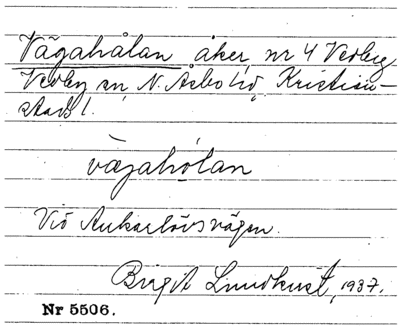 Vägahålan åker, nr 4 Verby,
Verby sn, N. Åsbo hd, Kristian-
stads l.
vägahòlan
Vid Ankarlövsvägen.
Birgit Lundkvist, 1937.
Nr 5506.